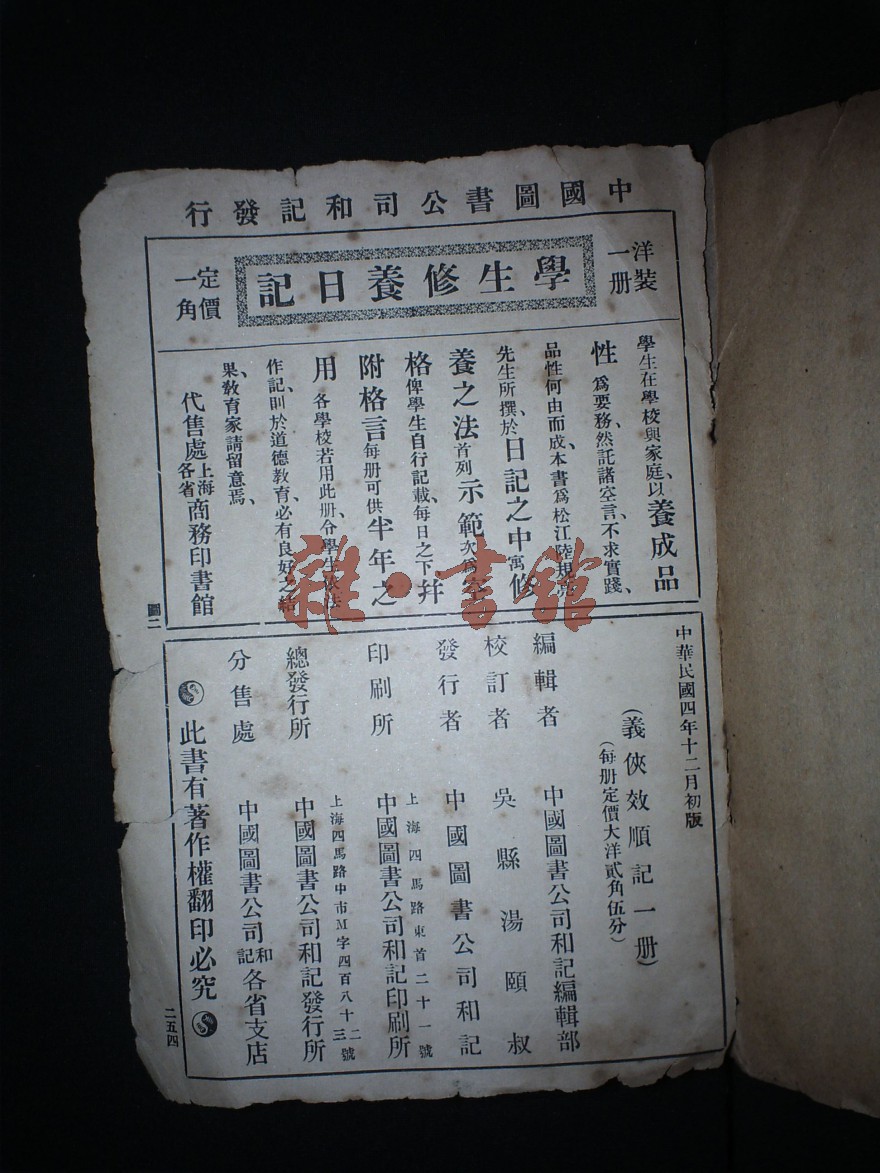 中國圖書公司和記發行
洋裝一册
學生修養日記
定價一角
學生在學校與家庭、以養成品
性爲要務、然託諸空言、不求實踐、
品性何由而成、本書爲松江陸規亮
先生所撰、於日記之中寓修
養之法首列示範次爲空
格俾學生自行記載、每日之下幷
附格言每册可供半年之
用各學校若用此册、令學生依法
作記、則於道德教育、必有良好之結
果、教育家請留意焉、
代售處上海各省商務印書館
圖二
中華民國四年十二月初版
(義俠效順記一册)
(每册定價大洋貳角伍分)
編輯者 中國圖書公司和記編輯部
校訂者 吳縣湯頤叔
發行者 中國圖書公司和記
上海四馬路東首二十一號
印刷所 中國圖書公司和記印刷所
上海四馬路中市M字四百八十二三號
總發行所 中國圖書公司和記發行所
分售處 中國圖書公司和記各省支店
此書有著作權翻印必究
二五四
雜·書館